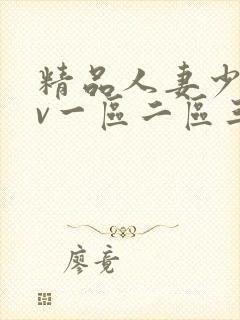 精品人妻少
v一區二區三
廖竟